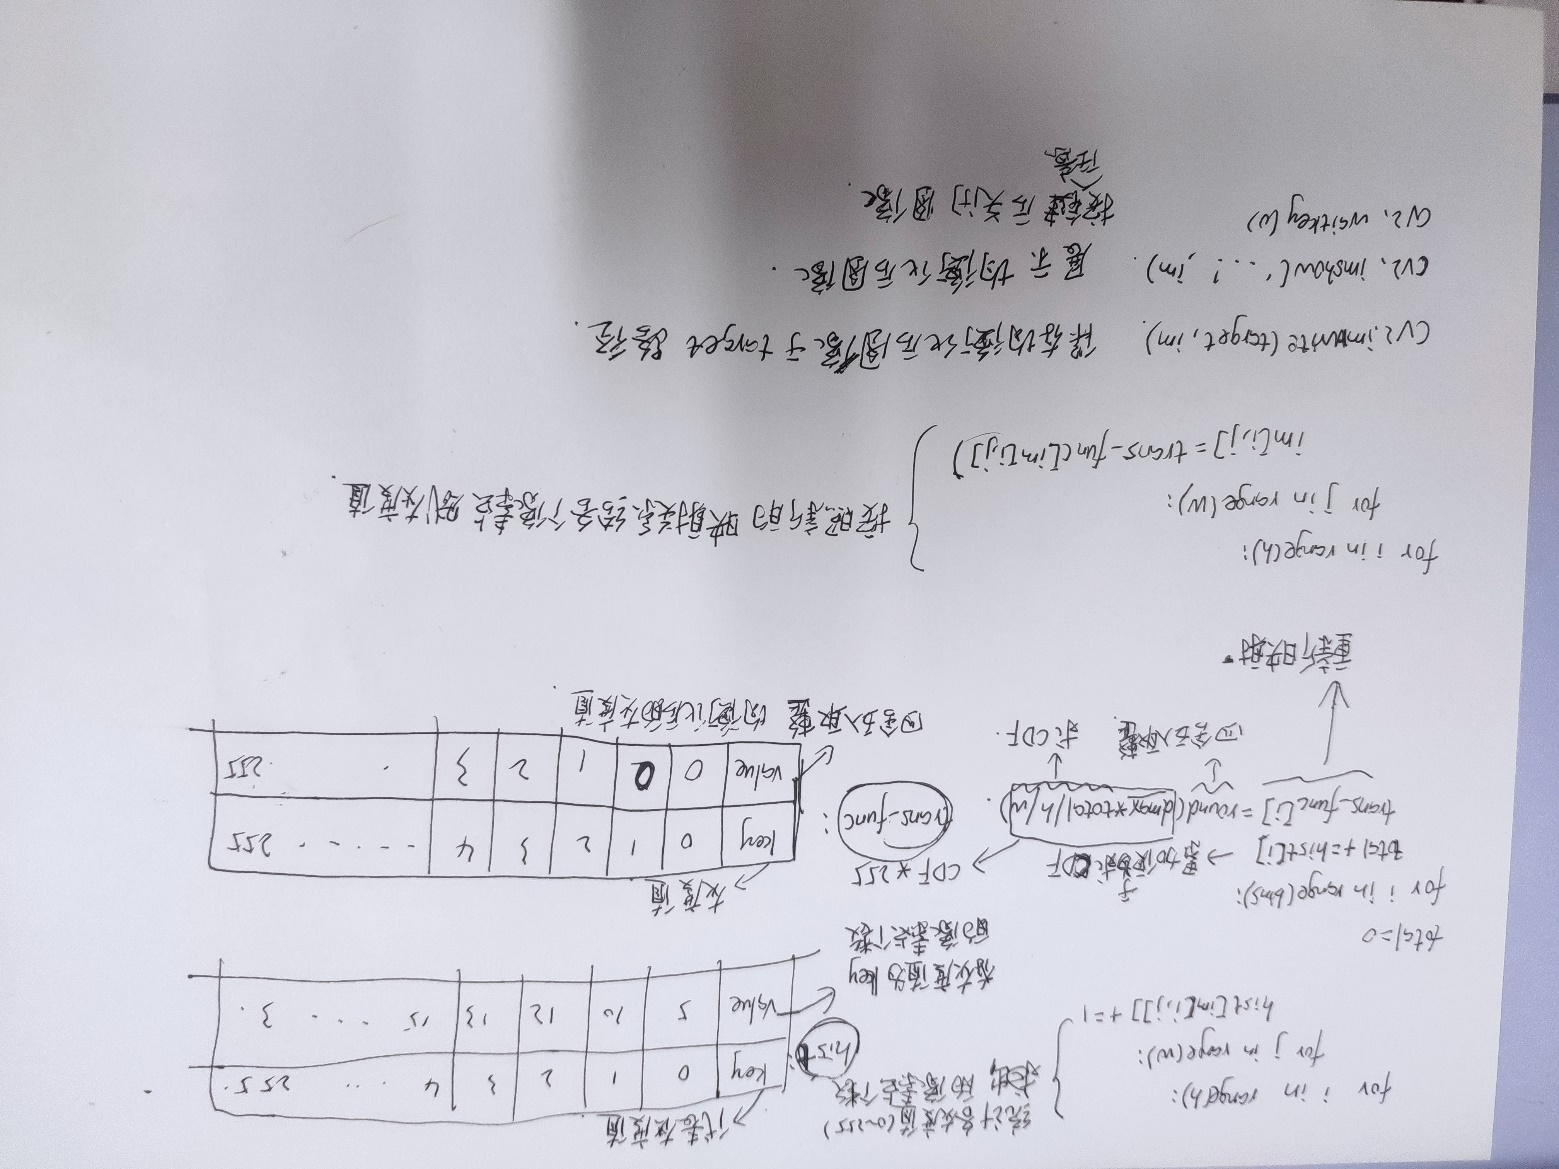 for i in range(h):
for j in range(w):
hist[im[i,j]] += 1
统计各灰度值(0~255)
求出 的像素点个数
hist:
代表灰度值
key 0 1 2 3 4 ... 255.
value 5 10 12 13 15 .... 3.
指灰度值为key
的像素点个数
total=0
for i in range(bins):
total+=hist[i] → 累加求CDF
trans_func[i] = round(dmax*total/h/w).
重新映射.
四舍五入取整.
求CDF.
CDF*255
trans_func:
灰度值
key 0 1 2 3 4 ...... 255
value 0 0 1 2 3 . 255
四舍五入取整 均衡化后的灰度值.
for i in range(h):
for j in range(w):
im[i,j] = trans_func[im[i,j]]
按照新的映射关系给各个像素点赋灰度值.
cv2.imwrite(target,im). 保存均衡化后图像于target路径.
cv2.imshow('...',im). 展示均衡化后图像.
cv2.waitkey(0) 按任意键后关闭图像.